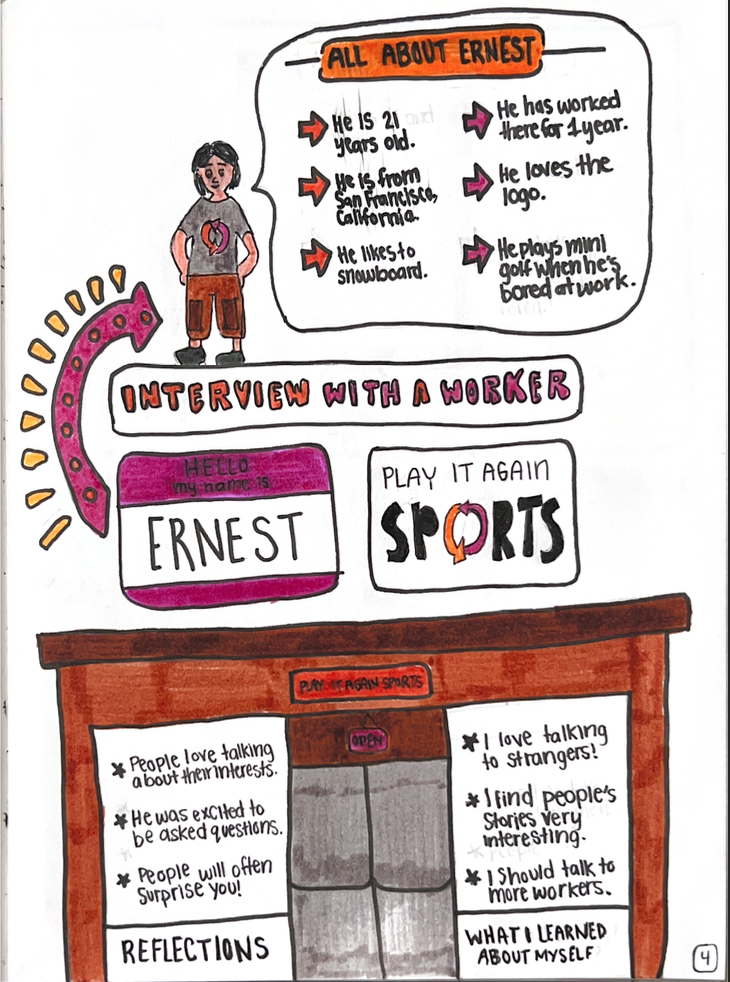 ALL ABOUT ERNEST
He is 21
years old.
He is from
San Francisco,
California.
He likes to
snowboard.
He has worked
there for 1 year.
He loves the
logo.
He plays mini
golf when he's
bored at work.
INTERVIEW WITH A WORKER
HELLO
my name is
ERNEST
PLAY IT AGAIN
SPORTS
PLAY IT AGAIN SPORTS
OPEN
* People love talking
about their interests.
* He was excited to
be asked questions.
* People will often
surprise you!
REFLECTIONS
* I love talking
to strangers!
* I find people's
stories very
interesting.
* I should talk to
more workers.
WHAT I LEARNED
ABOUT MYSELF
4